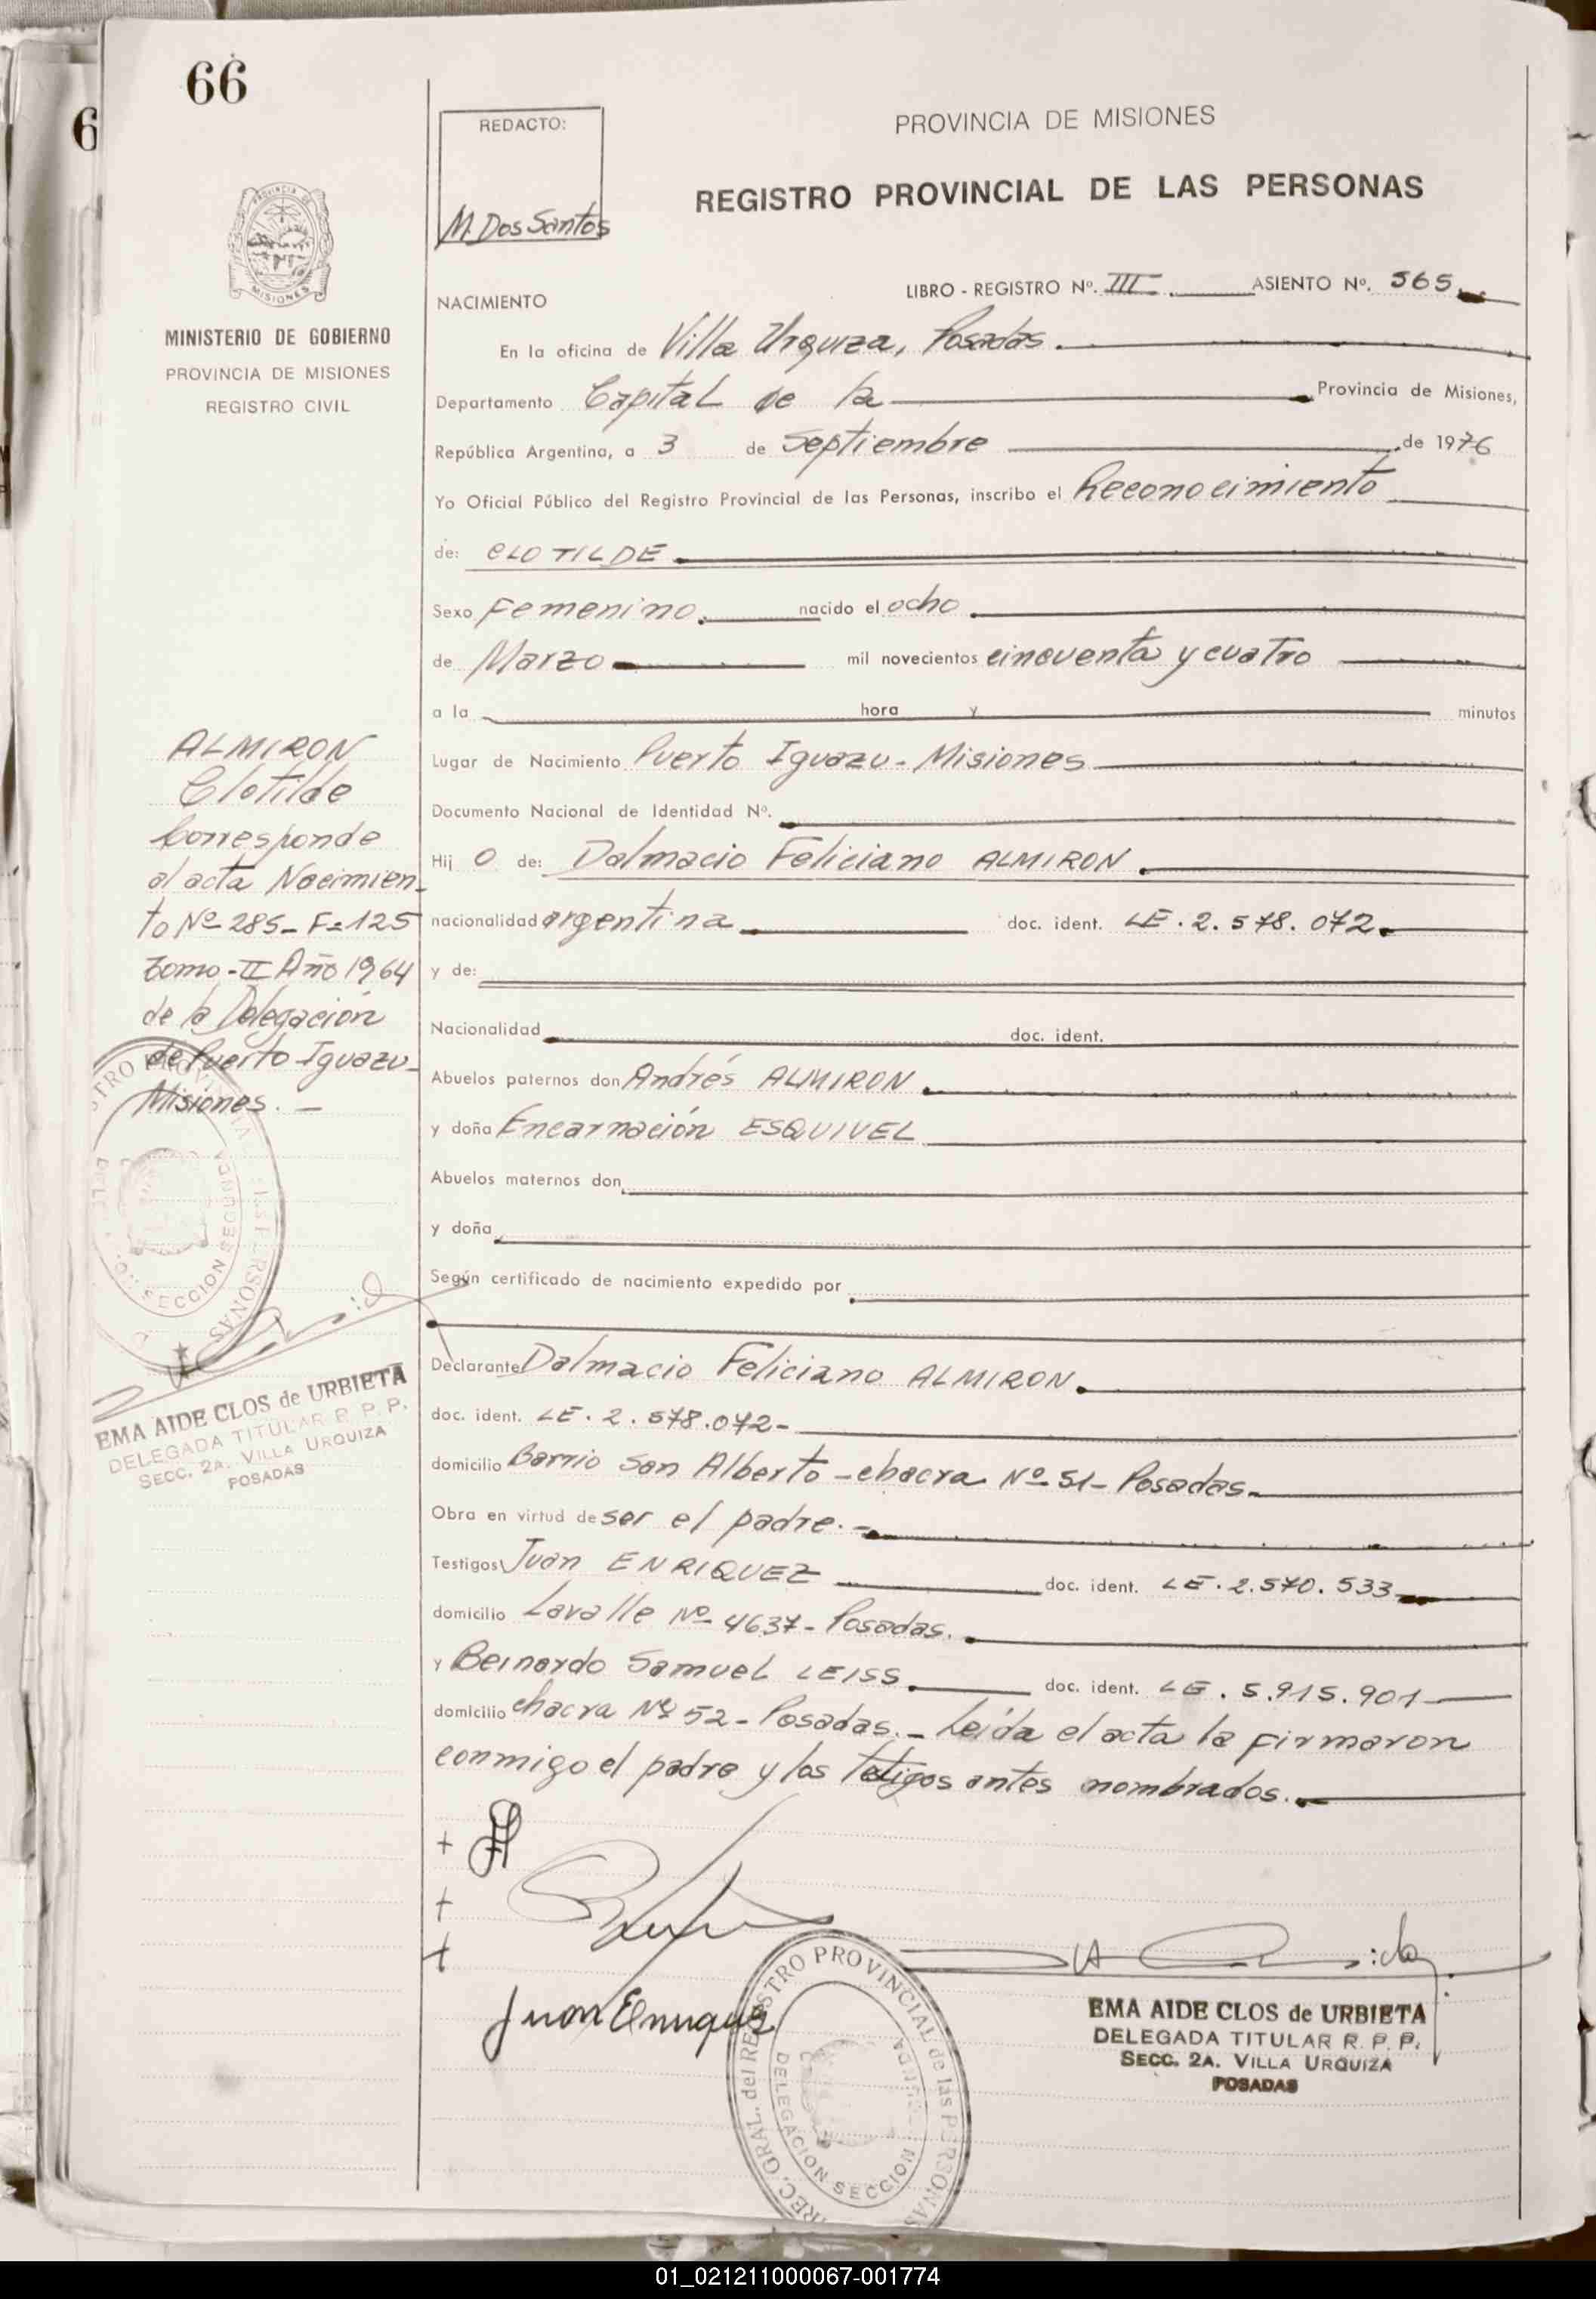 66
6
REDACTO:
M. Dos Santos
PROVINCIA DE MISIONES
REGISTRO PROVINCIAL DE LAS PERSONAS
PROVINCIA
MISIONES
MINISTERIO DE GOBIERNO
PROVINCIA DE MISIONES
REGISTRO CIVIL
LIBRO - REGISTRO Nº. III. ASIENTO Nº. 565
NACIMIENTO
En la oficina de Villa Urquiza, Posadas.
Departamento Capital de la Provincia de Misiones,
República Argentina, a 3 de Septiembre de 1976
Yo Oficial Público del Registro Provincial de las Personas, inscribo el Reconocimiento
de: CLOTILDE
Sexo Femenino. nacido el ocho
de Marzo mil novecientos cincuenta y cuatro
a la hora y minutos
Lugar de Nacimiento Puerto Iguazu - Misiones
Documento Nacional de Identidad Nº.
Hij o de: Dalmacio Feliciano ALMIRON
nacionalidad argentina doc. ident. LE. 2. 578. 072
y de:
Nacionalidad doc. ident.
Abuelos paternos don Andrés ALMIRON
y doña Encarnación ESQUIVEL
Abuelos maternos don
y doña
Según certificado de nacimiento expedido por
Declarante Dalmacio Feliciano ALMIRON
doc. ident. LE. 2. 578.072-
domicilio Barrio San Alberto - chacra Nº 51 - Posadas
Obra en virtud de ser el padre. -
Testigos Juan ENRIQUEZ doc. ident. LE. 2.570. 533
domicilio Lavalle Nº 4637 - Posadas.
y Bernardo Samuel LEISS doc. ident. LE. 5.915.901
domicilio chacra Nº 52 - Posadas. - Leída el acta la firmaron
conmigo el padre y los tetigos antes nombrados.
ALMIRON
Clotilde
Corresponde
al acta Nacimien-
to Nº 285 - F=125
Tomo - II Año 1964
de la Delegación
de Puerto Iguazu-
Misiones. -
SECCION SEGUNDA
PERSONAS
EMA AIDE CLOS de URBIETA
DELEGADA TITULAR R. P. P.
SECC. 2A. VILLA URQUIZA
POSADAS
Juan Enriquez
REC. GRAL. del REGISTRO PROVINCIAL de las PERSONAS
DELEGACION SECCION
EMA AIDE CLOS de URBIETA
DELEGADA TITULAR R. P. P.
SECC. 2A. VILLA URQUIZA
POSADAS
01_021211000067-001774